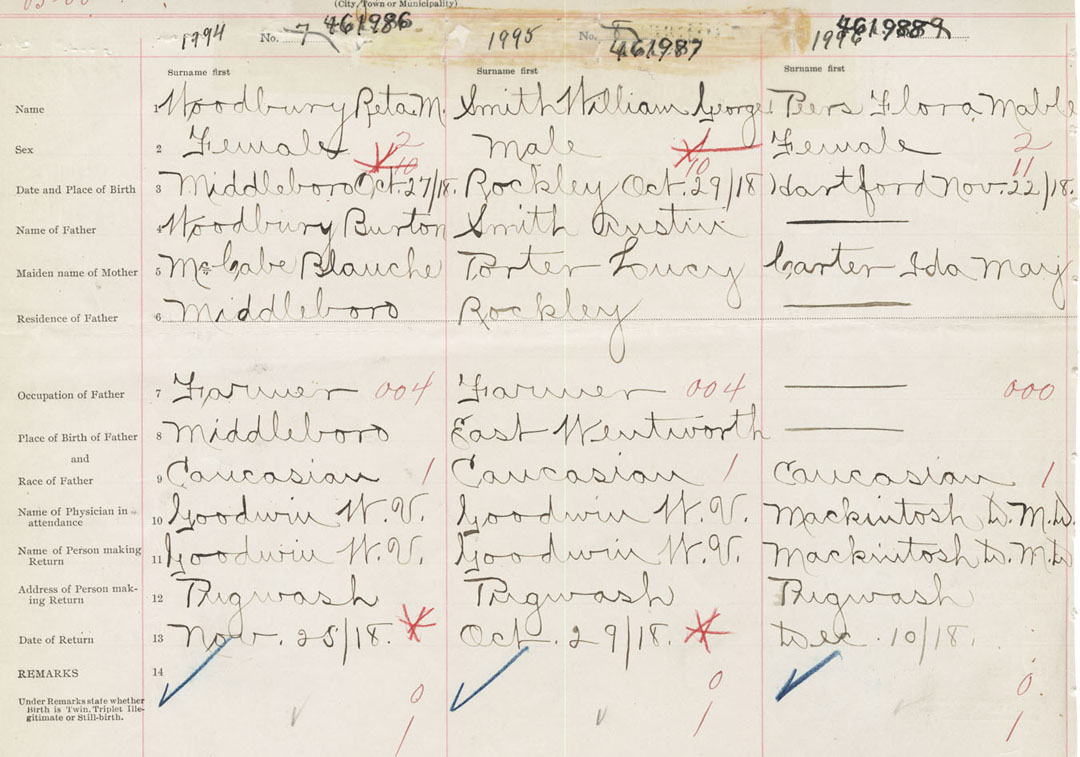 (City, Town or Municipality)
1994 No. 7 461986 1995 No. 8 461987 1996 461988
Surname first Surname first Surname first
Name 1 Woodbury Reta M. Smith William George Peers Flora Mable
Sex 2 Female 2 Male 1 Female 2
10 10 11
Date and Place of Birth 3 Middleboro Oct. 27/18. Rockley Oct. 29/18 Hartford Nov. 22/18.
Name of Father 4 Woodbury Burton Smith Austin
Maiden name of Mother 5 McCabe Blanche Porter Lucy Carter Ida May
Residence of Father 6 Middleboro Rockley
Occupation of Father 7 Farmer 004 Farmer 004 000
Place of Birth of Father 8 Middleboro East Wentworth
and
Race of Father 9 Caucasian 1 Caucasian 1 Caucasian 1
Name of Physician in attendance 10 Goodwin W.V. Goodwin W.V. Mackintosh D. M.D.
Name of Person making Return 11 Goodwin W.V. Goodwin W.V. Mackintosh D. M.D
Address of Person making Return 12 Pugwash Pugwash Pugwash
Date of Return 13 Nov. 25/18. Oct. 29/18. Dec. 10/18.
REMARKS 14
Under Remarks state whether
Birth is Twin, Triplet Ille-
gitimate or Still-birth.
0 0 0
1 1 1